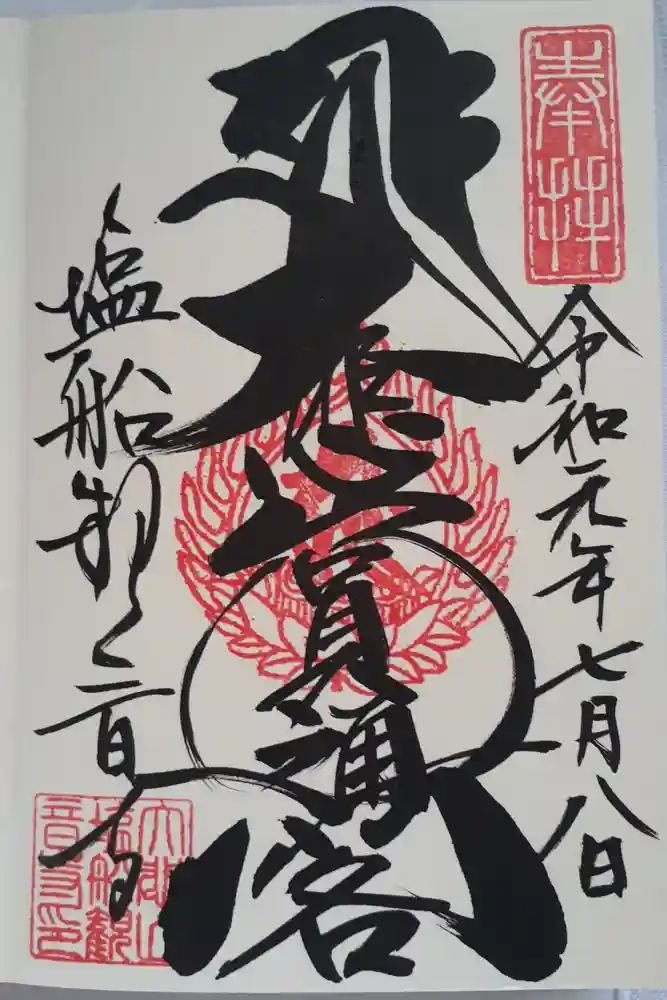 奉拝
令和元年七月八日
大悲圓通閣
塩船観音寺
大悲山
塩船観
音寺印